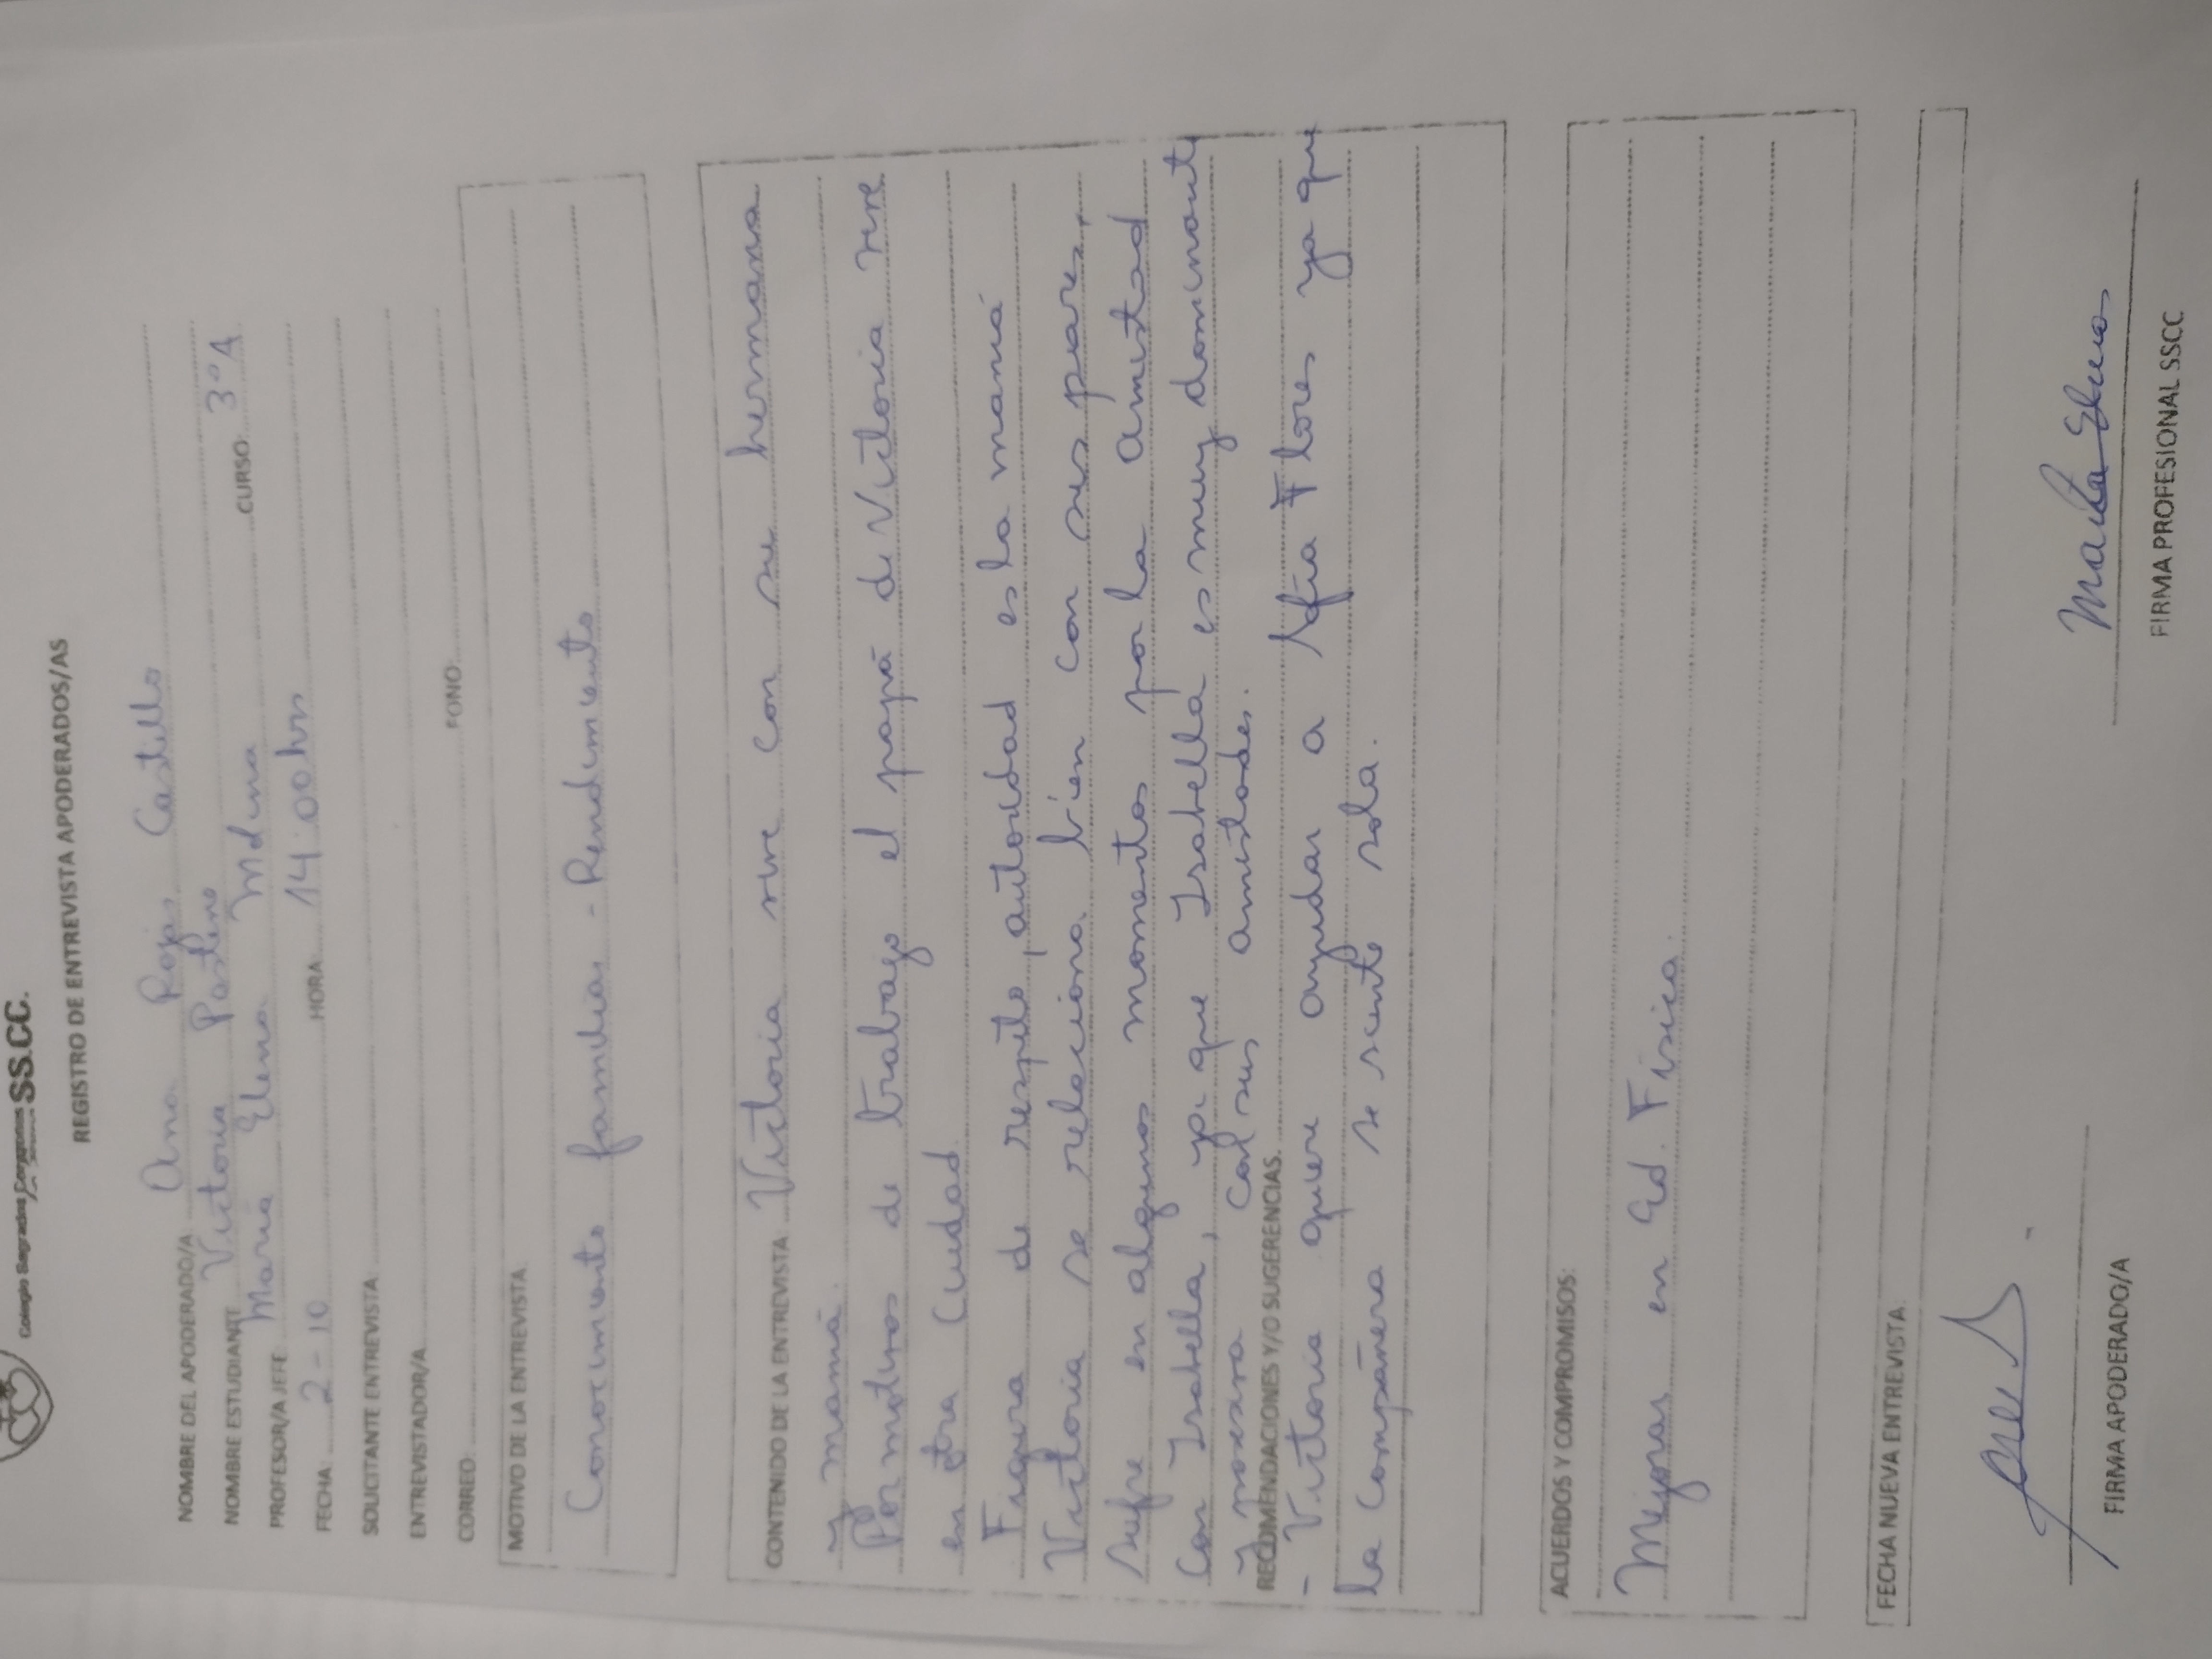 Colegio Sagrados Corazones SS.CC.
REGISTRO DE ENTREVISTA APODERADOS/AS
NOMBRE DEL APODERADO/A Ana Rojas Castillo
NOMBRE ESTUDIANTE Victoria Pasten CURSO: 3°A
PROFESOR/A JEFE: María Elena Medina
FECHA: 2-10 HORA: 14:00 hrs
SOLICITANTE ENTREVISTA:
ENTREVISTADOR/A
CORREO: FONO:
MOTIVO DE LA ENTREVISTA
Conocimiento familiar - Rendimiento
CONTENIDO DE LA ENTREVISTA Victoria vive con su hermana
y mamá.
Por motivos de trabajo el papá de Victoria vive
en otra ciudad
Figura de respeto, autoridad es la mamá
Victoria se relaciona bien con sus pares,
sufre en algunos momentos por la amistad
con Isabella, ya que Isabella es muy dominante
y posesiva con sus amistades.
RECOMENDACIONES Y/O SUGERENCIAS.
- Victoria quiere ayudar a Sofía Flores ya que
la compañera se siente sola.
ACUERDOS Y COMPROMISOS:
Mejorar en Ed. Física.
FECHA NUEVA ENTREVISTA
FIRMA APODERADO/A
María Elena
FIRMA PROFESIONAL SSCC